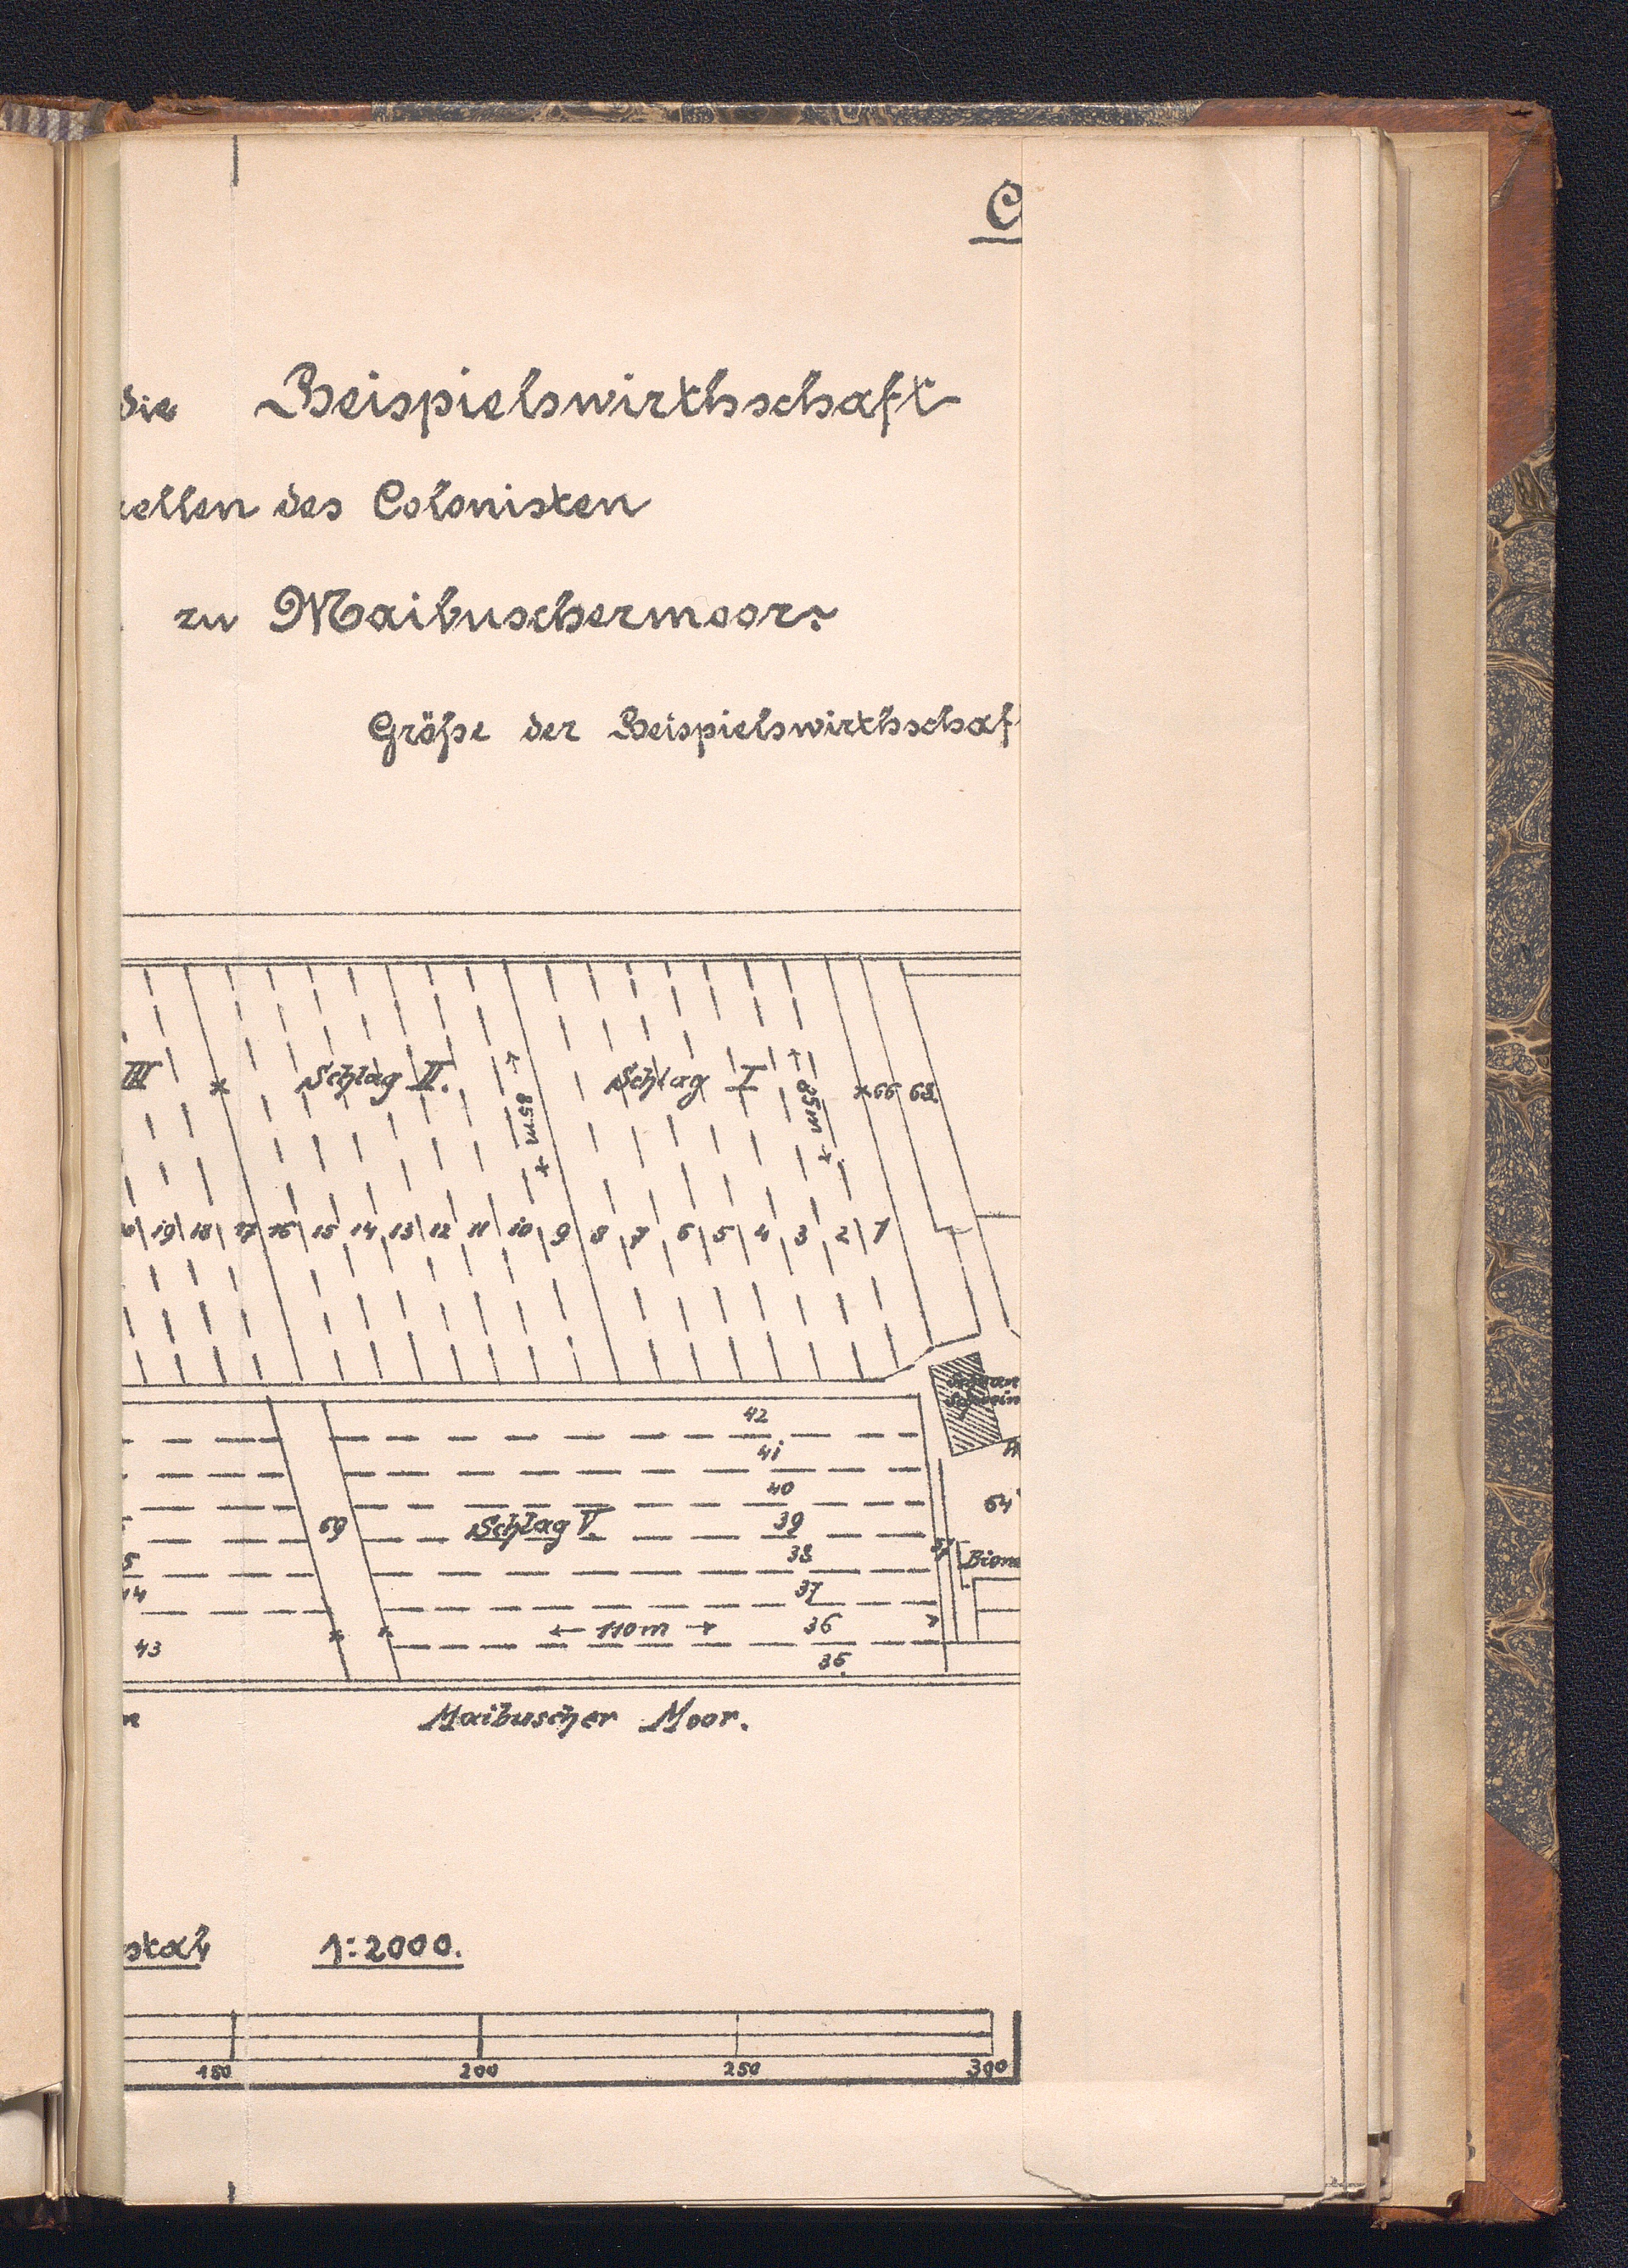 C
die Beispielswirthschaft
zellen des Colonisten
zu Maibuschermoor.
Größe der Beispielswirthschaf
III Schlag II. Schlag I 66 68.
85 m 85 m
19 18 17 16 15 14 13 12 11 10 9 8 7 6 5 4 3 2 1
42
41
40
69 Schlag V. 39
38
37
110 m 36
35.
64
43
Maibuscher Moor.
stab 1:2000.
150 200 250 300